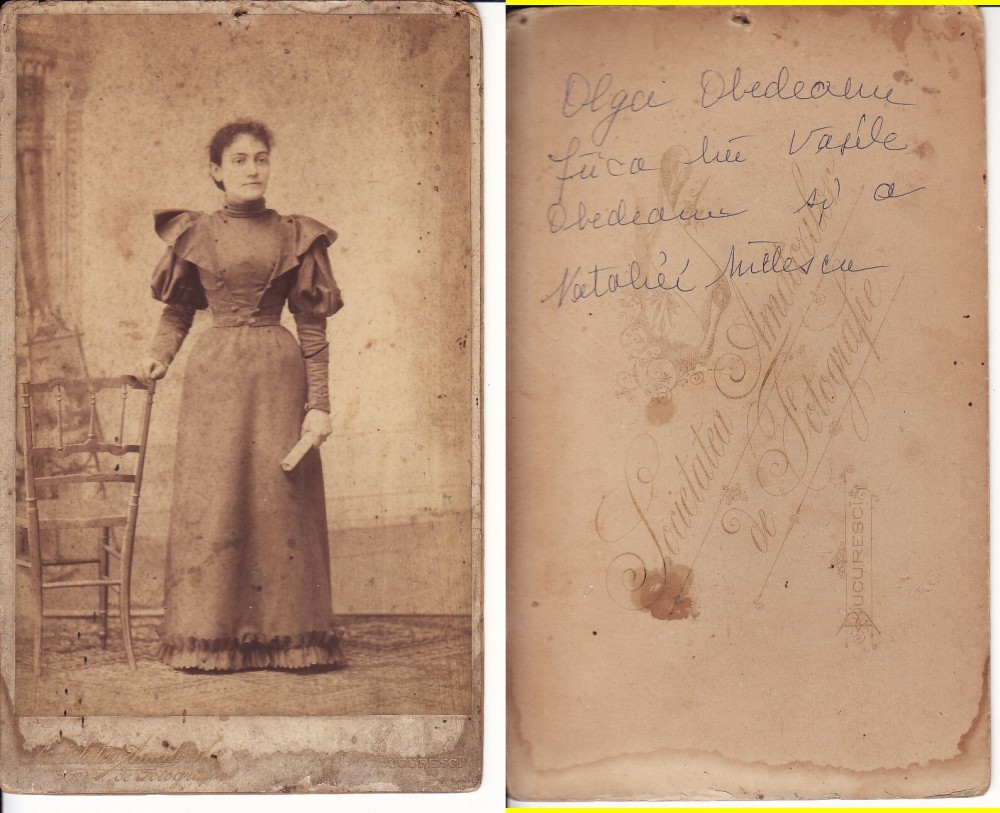 BUCURESCI
Olga Obedeanu
fiica lui Vasile
Obedeanu și a
Nataliei Milescu
Societatea Amatorilor
de Fotografie
BUCURESCI